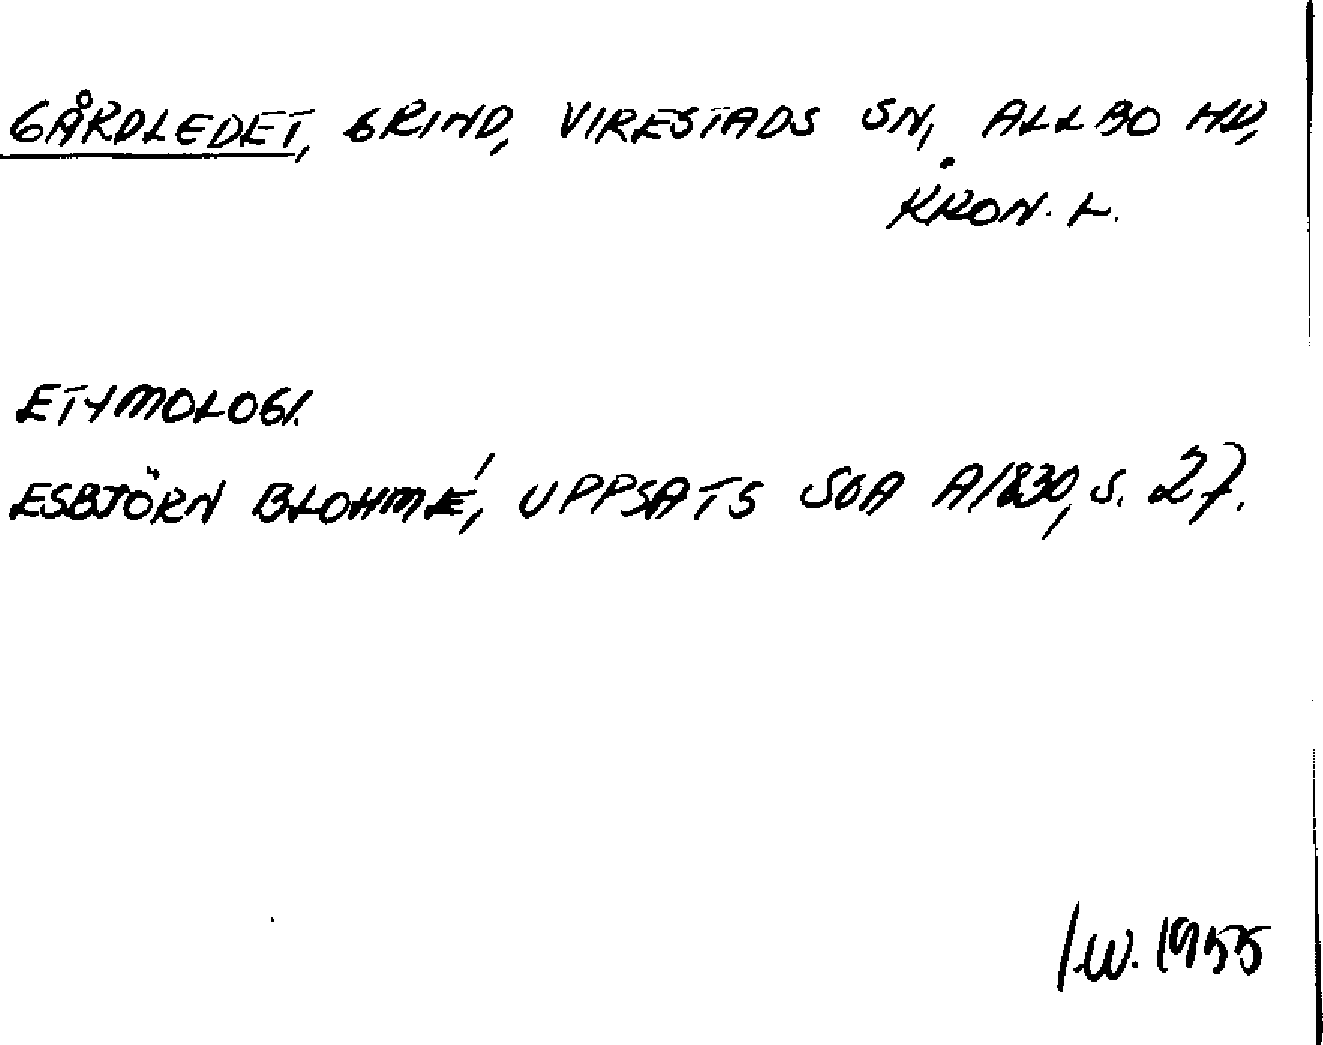 GÅRDLEDET, GRIND, VIRESTADS SN, ALLBO HD,
KRON. L.
ETYMOLOGI.
ESBJÖRN BLOHMÉ, UPPSATS SOA A1830, S. 27.
/W. 1955